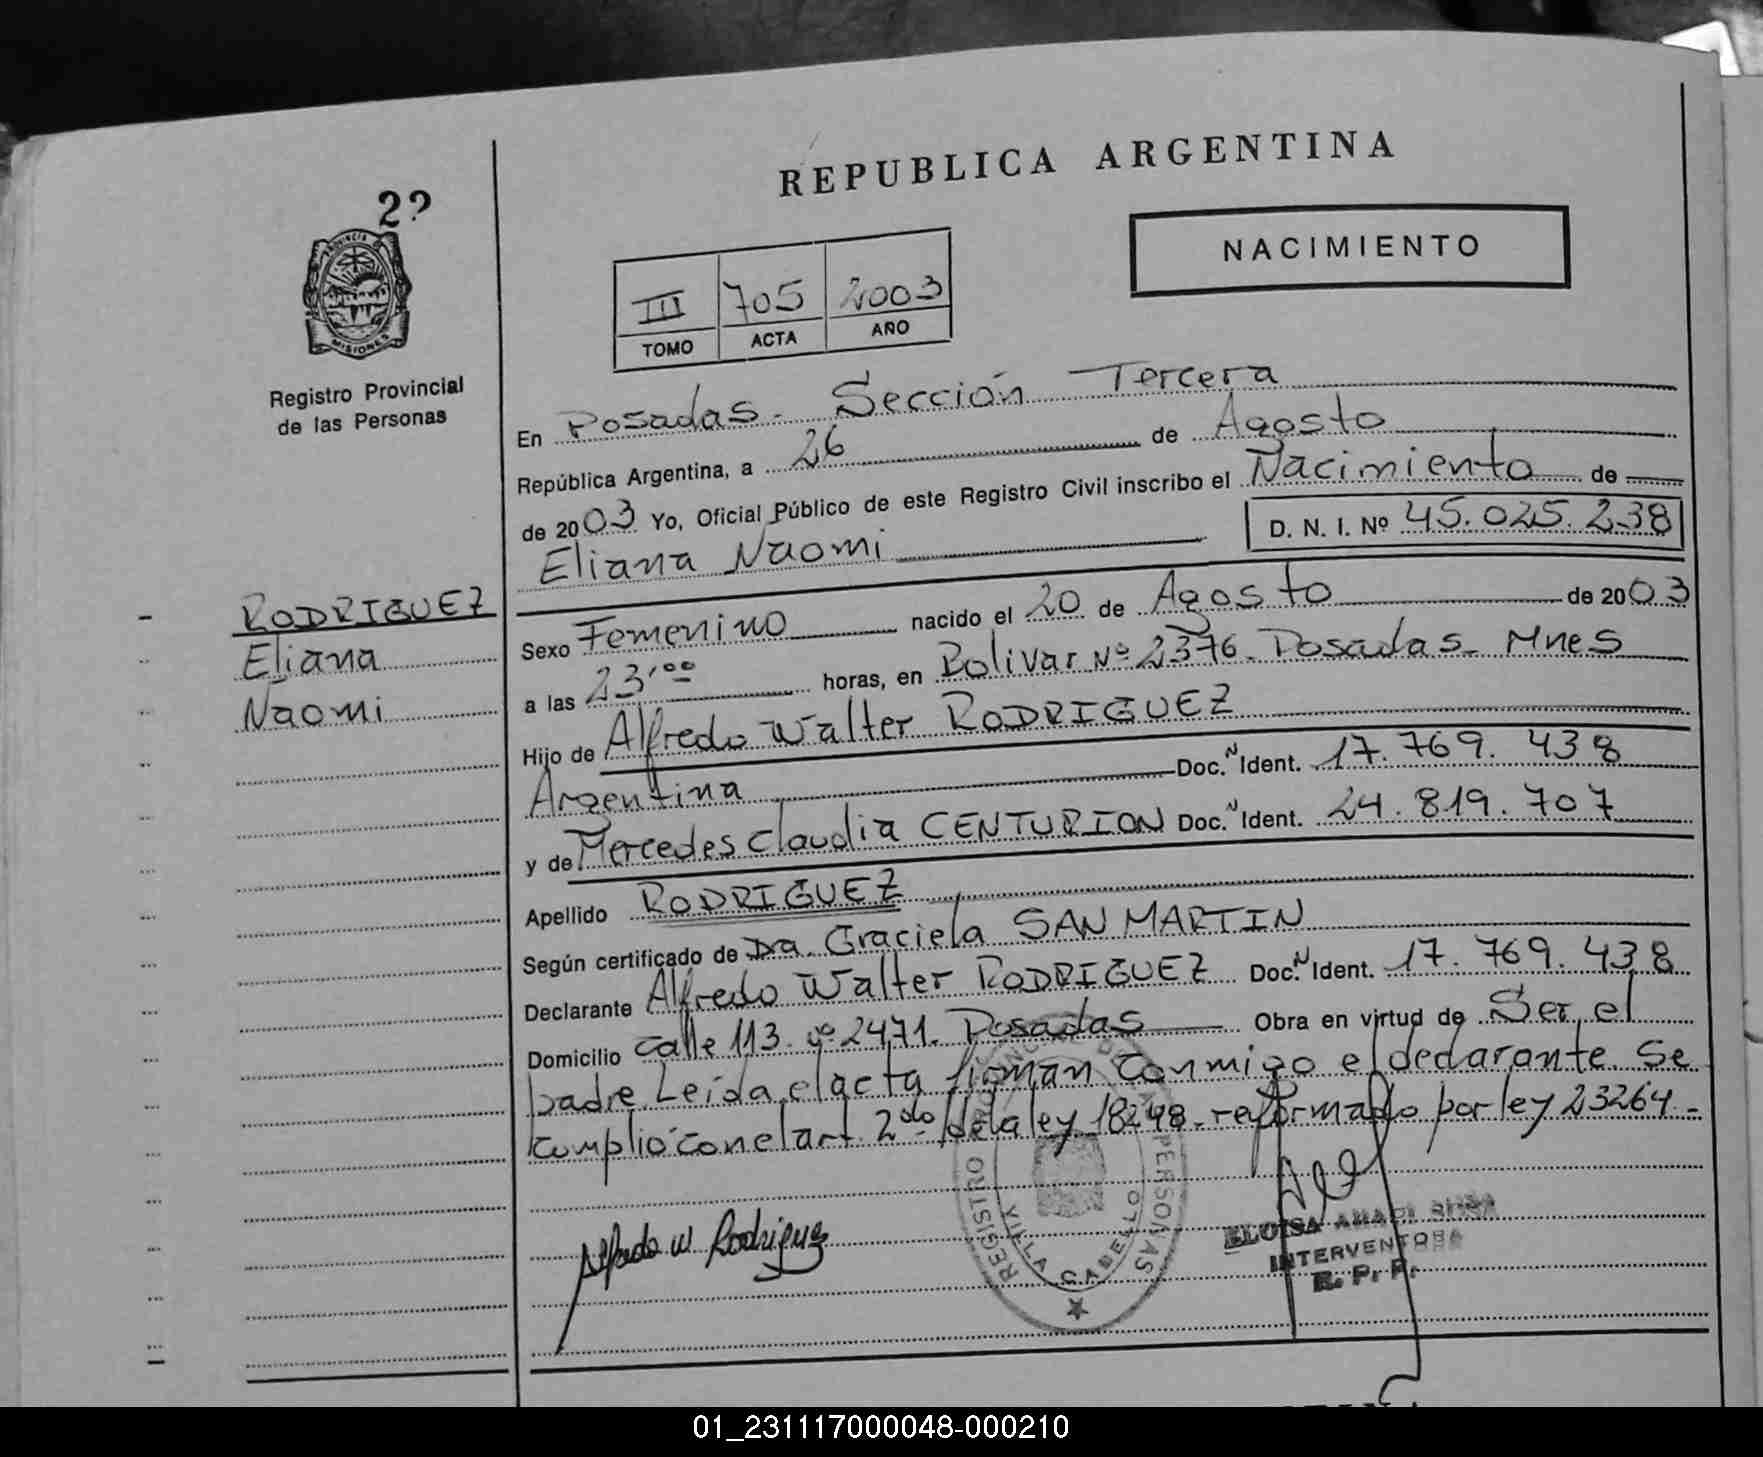 REPUBLICA ARGENTINA
2?
PROVINCIA
MISIONES
Registro Provincial
de las Personas
NACIMIENTO
III 705 2003
TOMO ACTA AÑO
En Posadas - Sección Tercera
República Argentina, a 26 de Agosto
de 2003 Yo, Oficial Público de este Registro Civil inscribo el Nacimiento de
Eliana Naomi D. N. I. Nº 45.025.238
RODRIGUEZ
Eliana
Naomi
Sexo Femenino nacido el 20 de Agosto de 2003
a las 23,00 horas, en Bolivar Nº 2376 - Posadas - Mnes
Hijo de Alfredo Walter RODRIGUEZ
Argentina Doc. N Ident. 17.769.438
y de Mercedes Claudia CENTURION Doc. N Ident. 24.819.707
Apellido RODRIGUEZ
Según certificado de Dra. Graciela SAN MARTIN
Declarante Alfredo Walter RODRIGUEZ Doc. N Ident. 17.769.438
Domicilio calle 113 - nº 2471. Posadas Obra en virtud de Ser el
padre. Leida el acta firman conmigo el declarante. Se
cumplio con el art. 2do de la ley 18248 - reformado por ley 23264 -
Alfredo W Rodriguez
REGISTRO PERSONAS
VILLA CABELLO
ELOISA
INTERVENTORA
R. P. P.
01_231117000048-000210